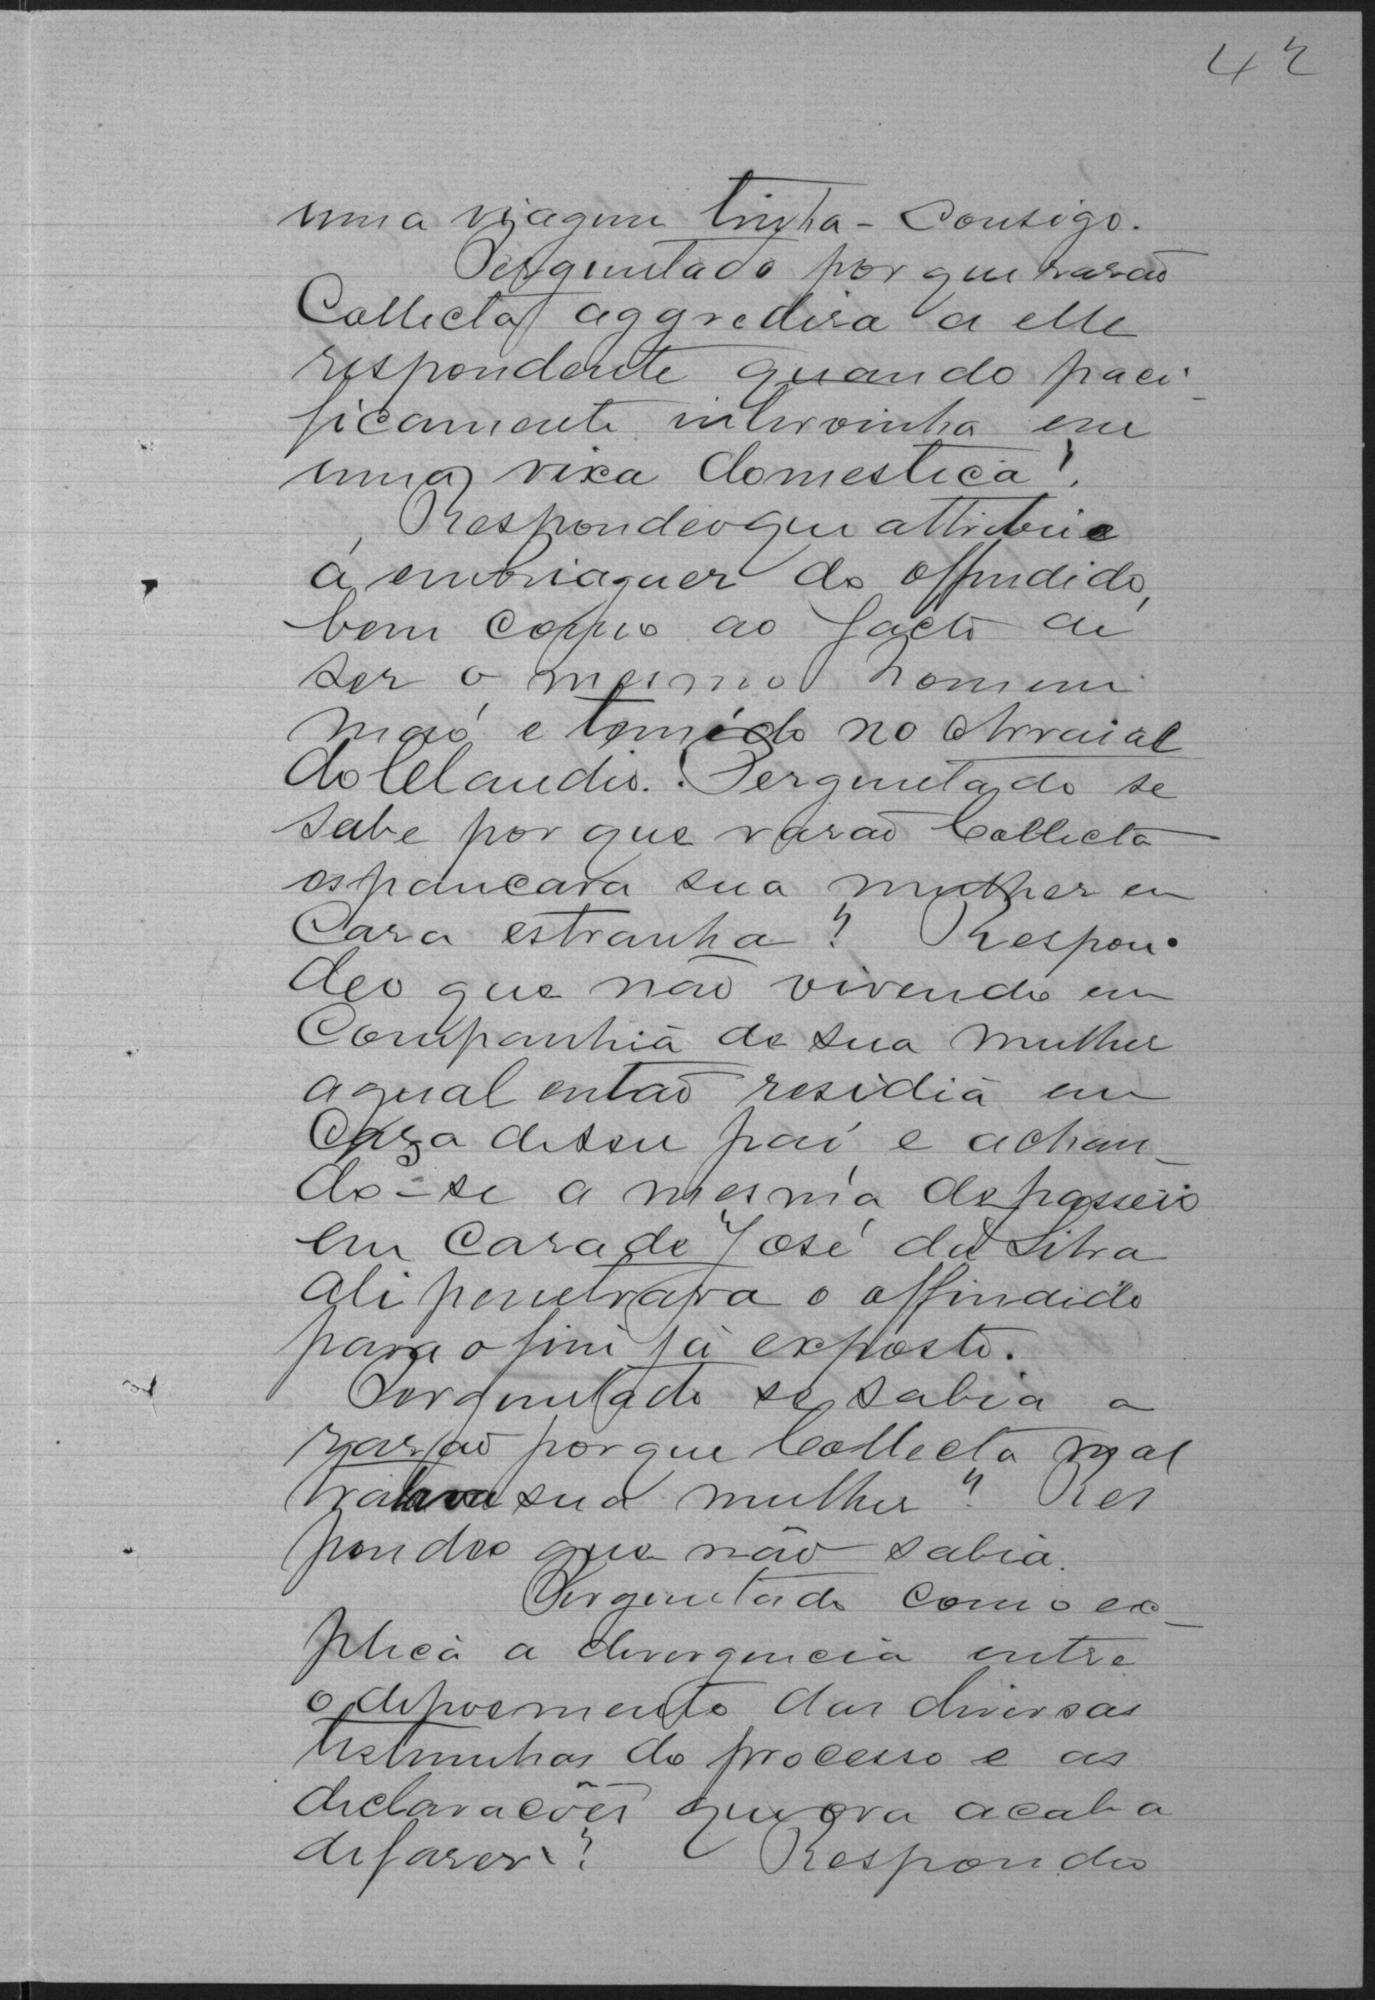 42
uma viagem tinha-consigo.
Perguntado por que rasão
Collecta aggredira a elle
respondente quando paci-
ficamente intervinha em
uma rixa domestica?
Respondeo que attribue
á embriaguez do offendido,
bem como ao facto de
ser o mesmo homem
máo e temido no Arraial
do Claudio. Perguntado se
sabe por que rasão Collecta
espancara sua mulher em
casa estranha? Respon-
deo que não vivendo em
companhia de sua mulher
a qual então residia em
caza de seu pai e achan-
do-se a mesma de passeio
em casa de José da Silva
ali penetrara o offendido
para o fim já exposto.
Perguntado se sabia a
rasão porque Collecta mal
tratava sua mulher? Res
pondeo que não sabia.
Perguntado como ex-
plica a divergencia entre
o depoemento das diversas
testemunhas do processo e as
declarações que ora acaba
de faser? Respondeo